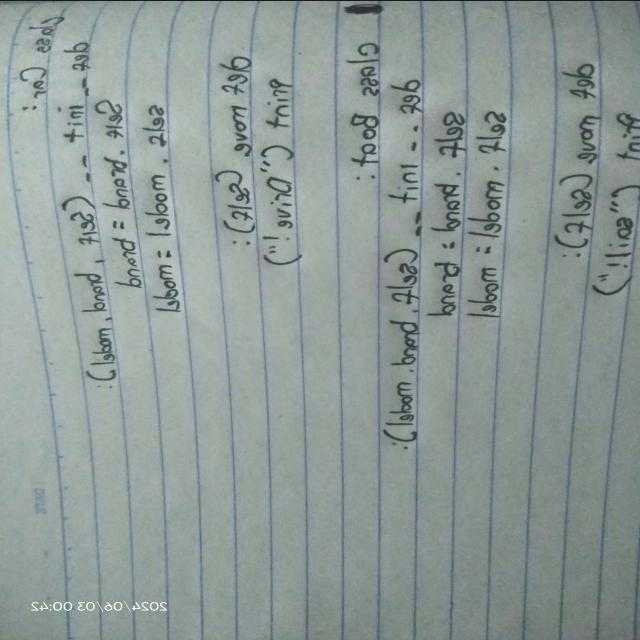 class Car:
def __init__(self, brand, model):
self.brand = brand
self.model = model
def move (self):
print ("Drive!")
class Boat:
def __init__(self, brand, model):
self.brand = brand
self.model = model
def move (self):
print ("sail!")
2024/06/03 00:42